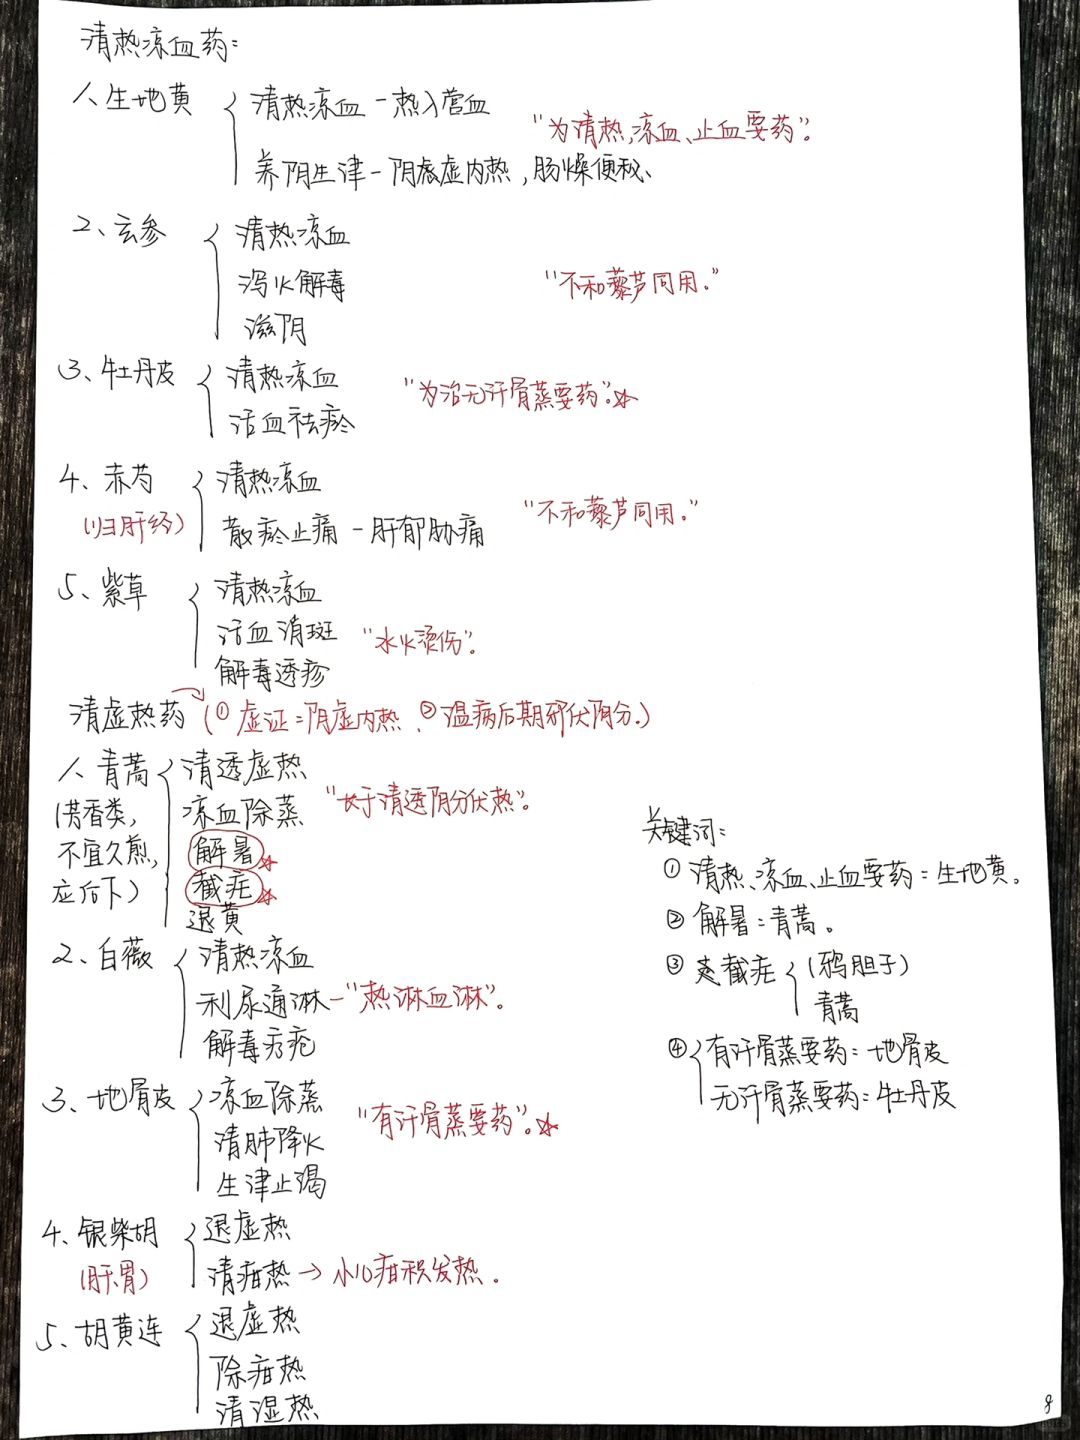 清热凉血药：
1、生地黄 清热凉血－热入营血
"为清热、凉血、止血要药"。
养阴生津－阴虚内热，肠燥便秘、
2、玄参 清热凉血
泻火解毒 "不和藜芦同用。"
滋阴
3、牡丹皮 清热凉血 "为治无汗骨蒸要药"。☆
活血祛瘀
4、赤芍 清热凉血
(归肝经) 散瘀止痛－肝郁胁痛 "不和藜芦同用。"
5、紫草 清热凉血
活血消斑 "水火烫伤"。
解毒透疹
清虚热药 (① 虚证=阴虚内热、② 温病后期邪伏阴分.)
1、青蒿 清透虚热
(芳香类, 凉血除蒸 "长于清透阴分伏热"。
不宜久煎, 解暑☆
应后下) 截疟☆
退黄
2、白薇 清热凉血
利尿通淋－"热淋血淋"。
解毒疗疮
3、地骨皮 凉血除蒸 "有汗骨蒸要药"。☆
清肺降火
生津止渴
4、银柴胡 退虚热
(肝胃) 清疳热→小儿疳积发热.
5、胡黄连 退虚热
除疳热
清湿热
关键词：
① 清热、凉血、止血要药=生地黄。
② 解暑=青蒿。
③ 截疟 (鸦胆子)
青蒿
④ 有汗骨蒸要药=地骨皮
无汗骨蒸要药=牡丹皮
8